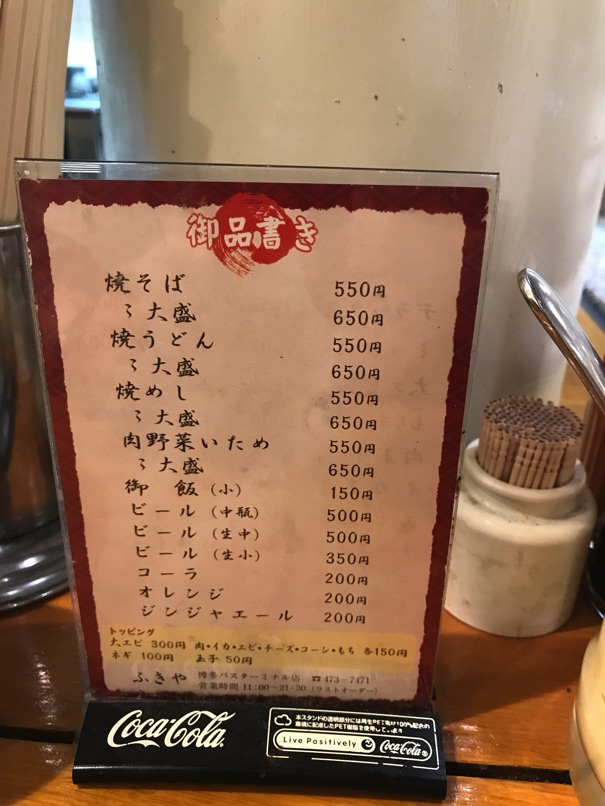 御品書き
焼そば 550円
〃大盛 650円
焼うどん 550円
〃大盛 650円
焼めし 550円
〃大盛 650円
肉野菜いため 550円
〃大盛 650円
御飯(小) 150円
ビール(中瓶) 500円
ビール(生中) 500円
ビール(生小) 350円
コーラ 200円
オレンジ 200円
ジンジャエール 200円
トッピング
大エビ 300円 肉・イカ・エビ・チーズ・コーン・もち 各150円
ネギ 100円 玉子 50円
ふきや 博多バスターミナル店 ☎473-7471
営業時間 11:00〜21:30 (ラストオーダー)
Coca-Cola
本スタンドの透明部分には再生PET樹脂100%配合の
環境に配慮したPET樹脂を使用しています
Live Positively Coca-Cola